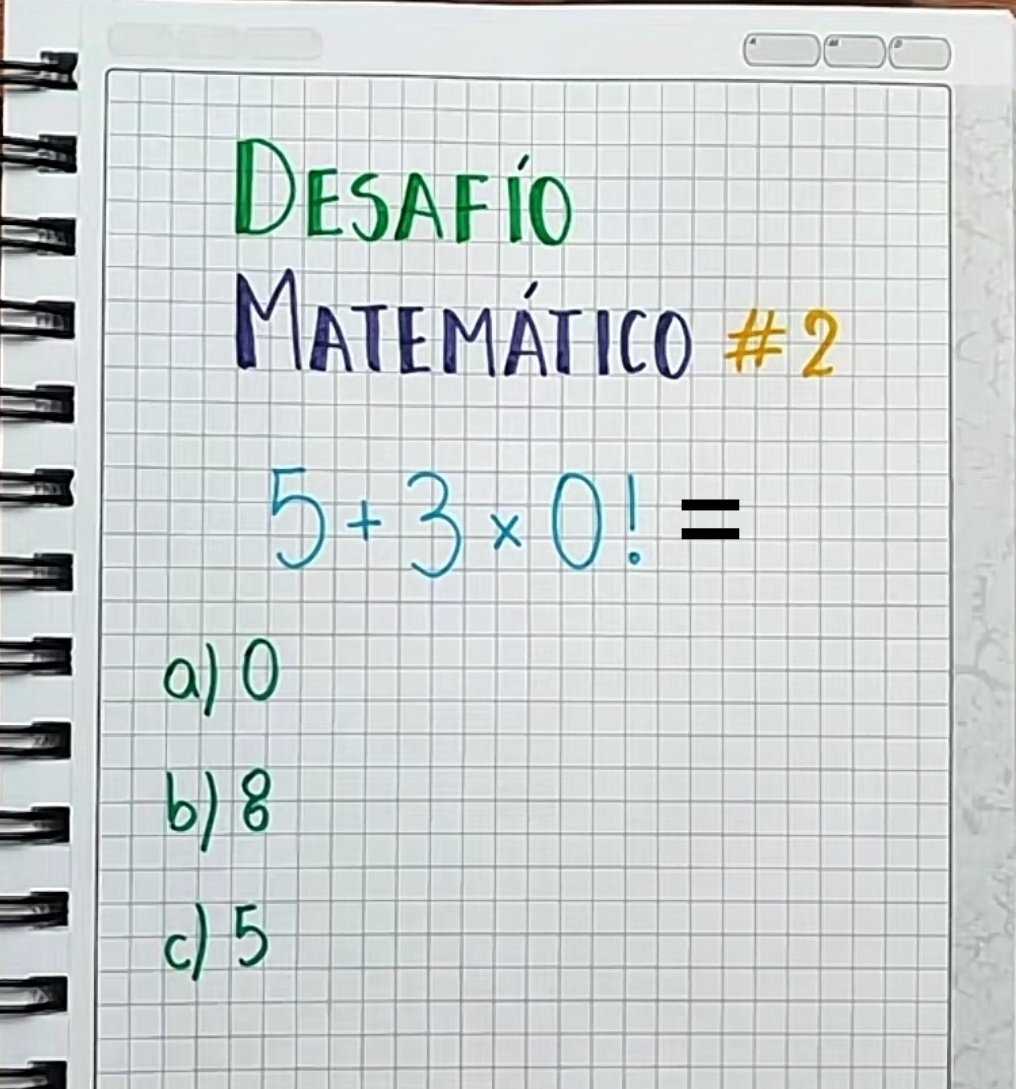 DESAFÍO
MATEMÁTICO #2
5+3×0! =
a) 0
b) 8
c) 5